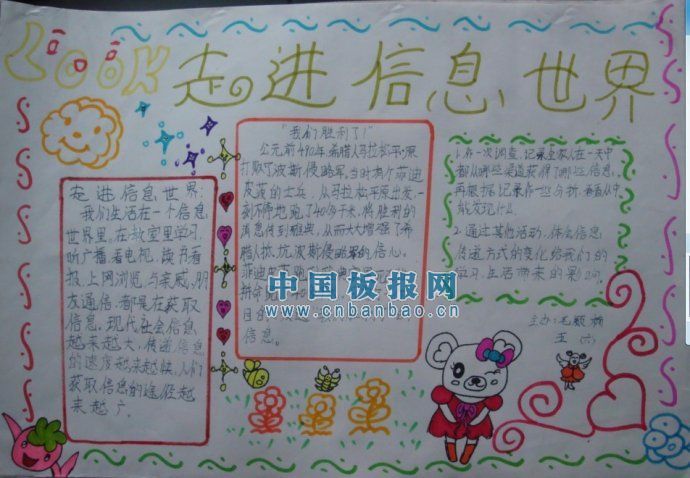 LOOK 走进信息世界
走进信息世界:
我们生活在一个信息
世界里。在教室里学习,
听广播看电视,读书看
报,上网浏览与亲戚、朋
友通信,都是在获取
信息。现代社会信息
越来越大,传递信息
的速度越来越快,人们
获取信息的途径越
来越广。
"我们胜利了!"
公元前490年,希腊人马拉松平原
打败了波斯侵略军,当时有个菲迪
皮茨的士兵,从马拉松平原出发,一
刻不停地跑了40多千米,将胜利的
消息传到雅典,从而大大增强了希
腊人抵抗波斯侵略军的信心。
菲迪皮茨
拼命
目的
信息。
1.办一次调查,记录全家人在一天中
都从哪些渠道获得了哪些信息,
再根据记录作一些分析,看看从中
能发现什么
2.通过其他活动,体会信息
传递方式的变化给我们的
学习、生活带来的影响。
主办:毛颖
五 (六)
中国板报网
www.cnbanbao.cn